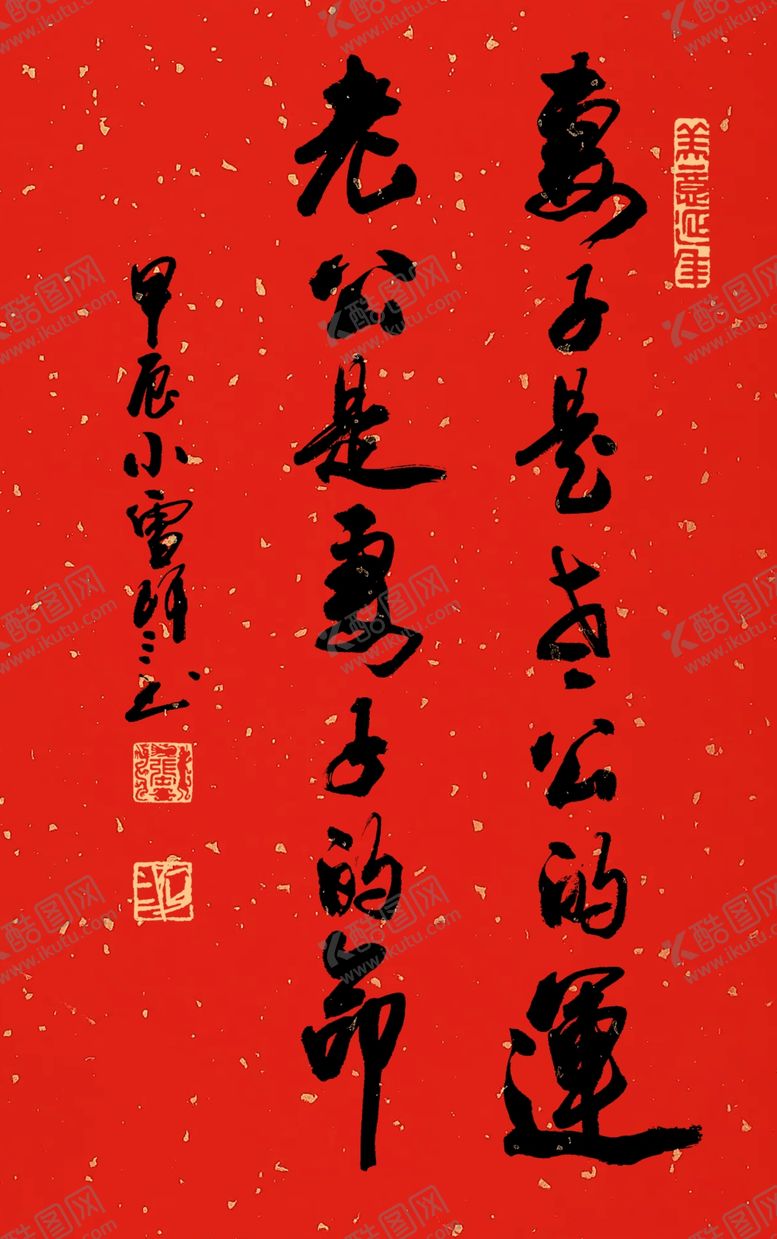 妻子是老公的運
老公是妻子的命
甲辰小雪
美意延年
酷图网
www.ikutu.com